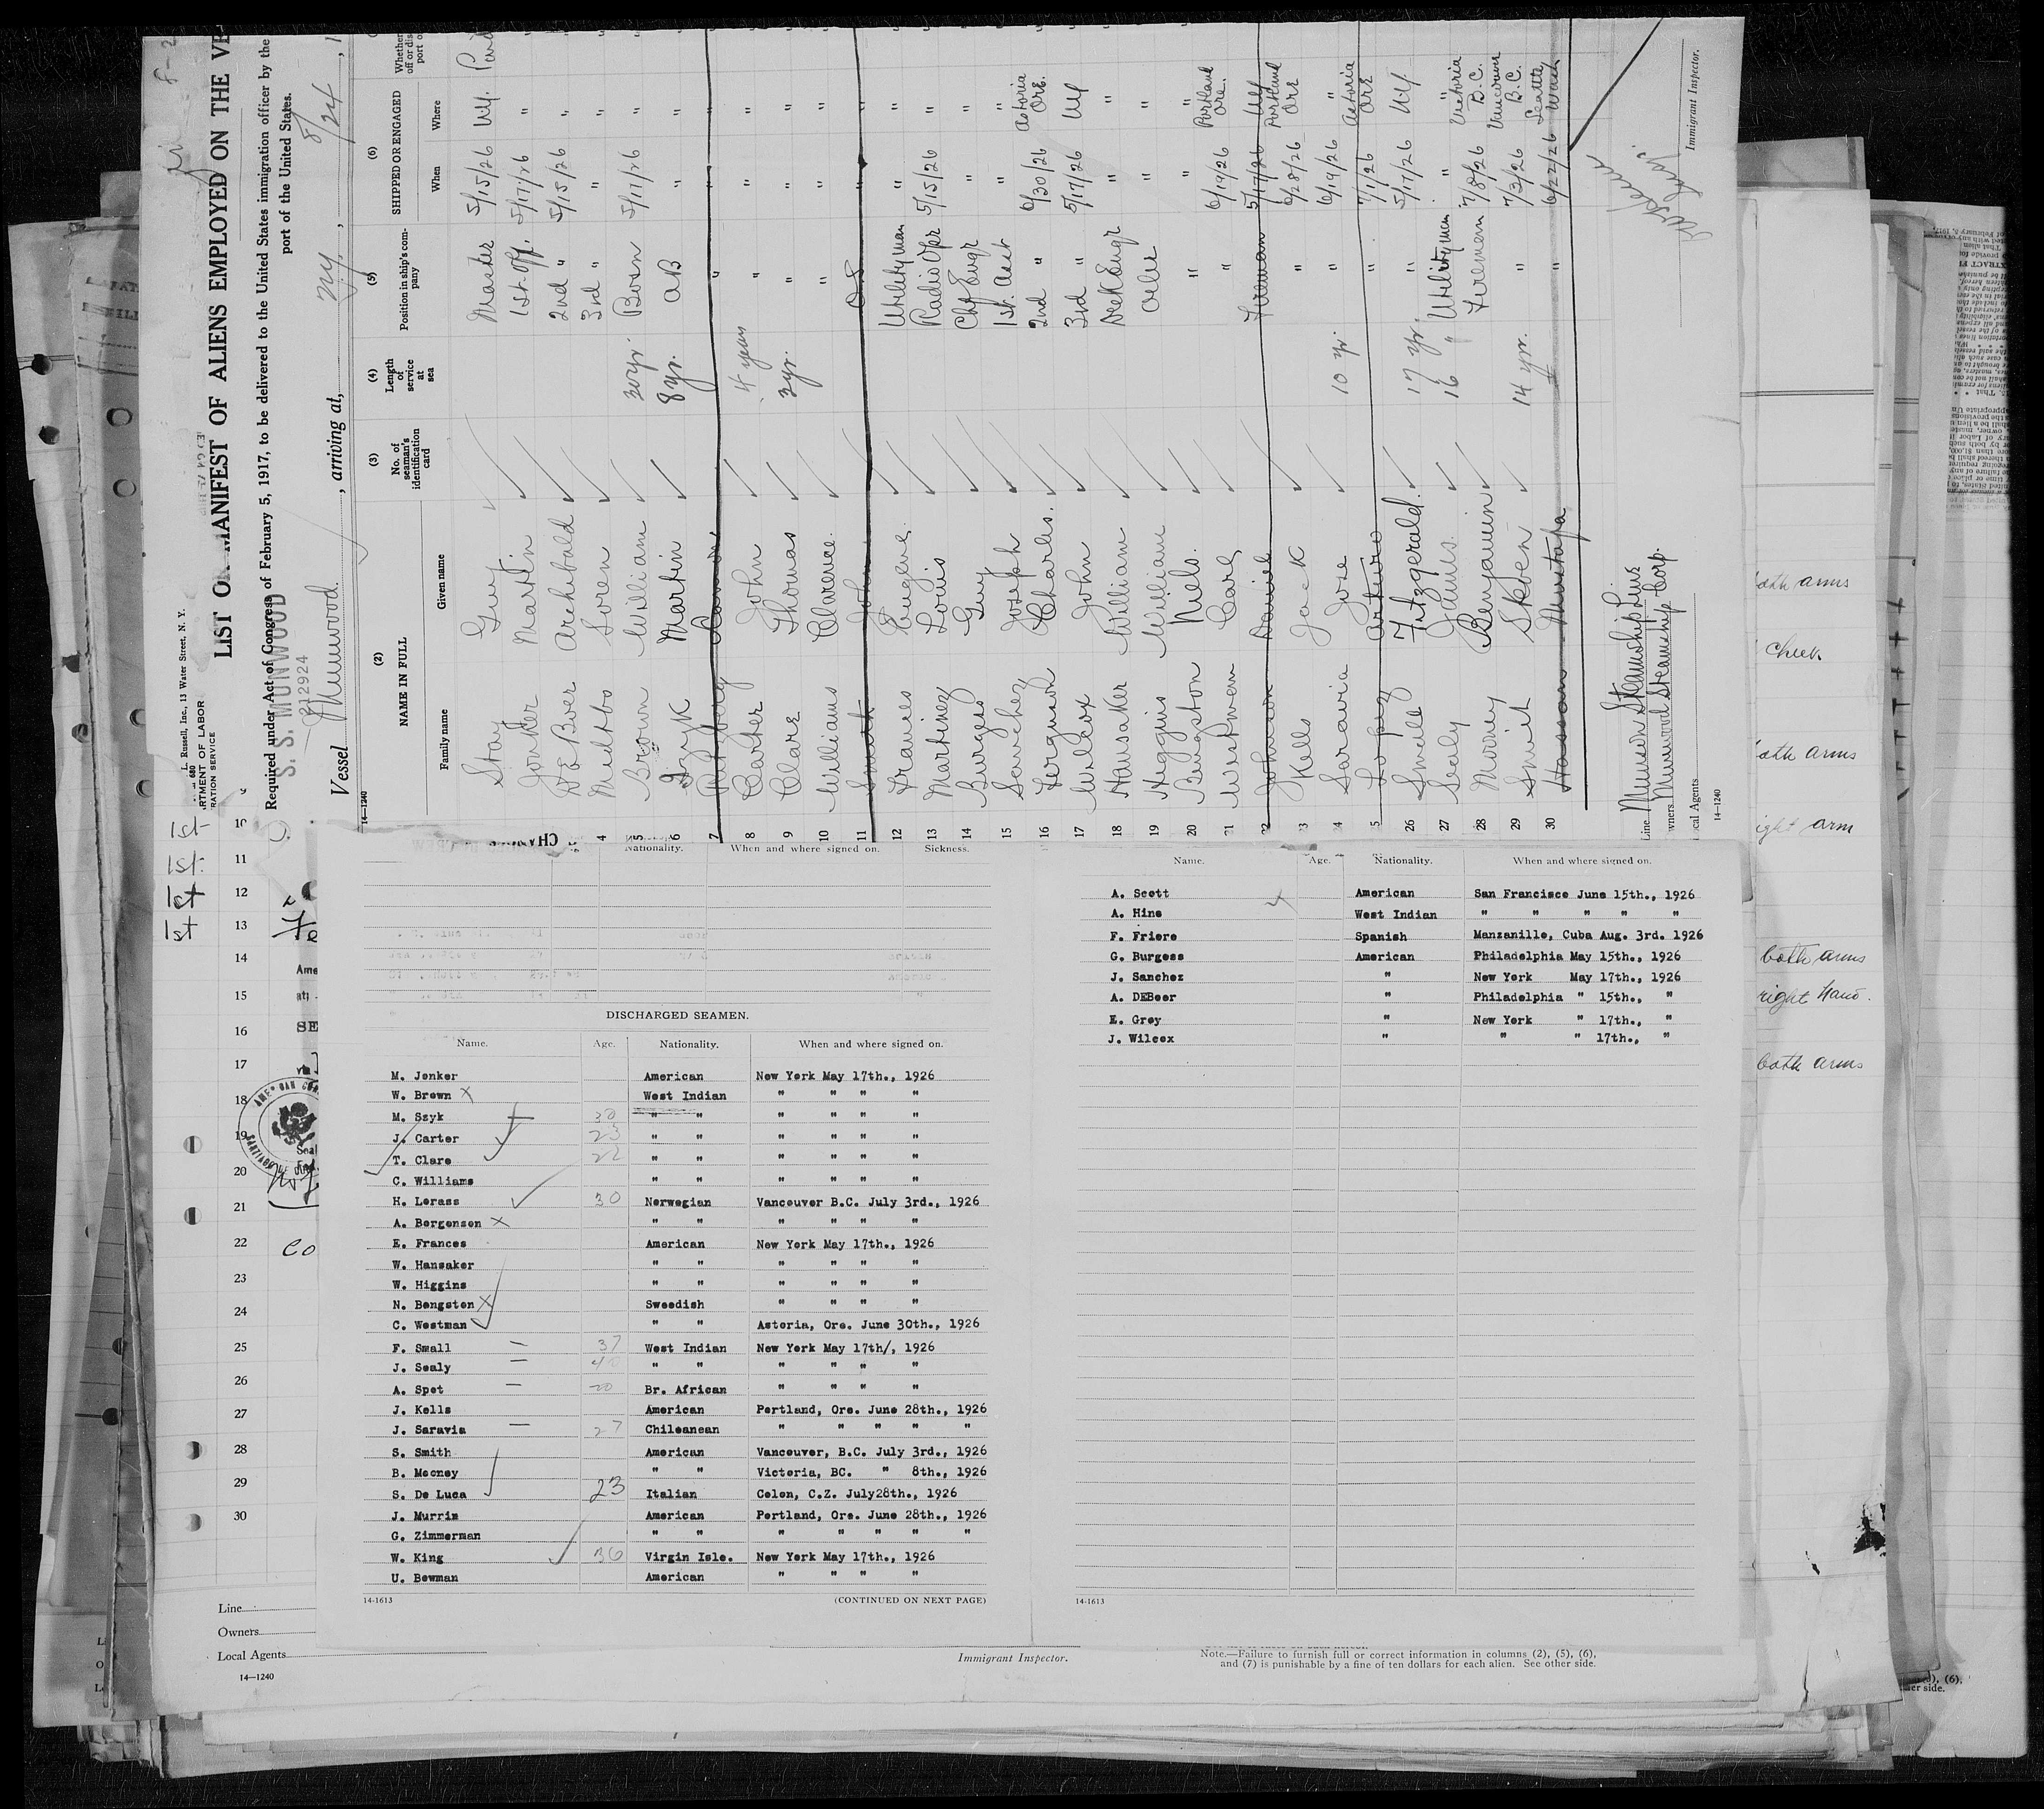 L. Russell, Inc., 13 Water Street, N. Y.
680
RTMENT OF LABOR
RATION SERVICE
LIST OR MANIFEST OF ALIENS EMPLOYED ON THE VE
Required under Act of Congress of February 5, 1917, to be delivered to the United States immigration officer by the
port of the United States.
S. S. MUNWOOD
212924
Vessel Munwood. , arriving at, NY, , 8/24 , 1
14—1240
(2) (3) (4) (5) (6)
NAME IN FULL
Family name Given name
No. of seaman's identification card
Length of service at sea
Position in ship's company
SHIPPED OR ENGAGED
When Where
Stay Guy Master 5/15/26 NY. Paid
Jonker Martin 1st. Off. 5/17/26 "
DEBoer Archibald 2nd " 5/15/26 "
4 Soren 3rd " " "
5 Brown William 30 yr. Bosn 5/17/26 "
6 Szyk Martin 8 yr. AB " "
7 " " "
8 Carter John 4 years " " "
9 Clare Thomas 3 yr. " " "
10 Williams Clarence. " " "
11 Smith John O.S " "
12 Frances Eugene. Utilityman " "
13 Martinez Louis Radio Opr 5/15/26 "
14 Burgess Guy Chf Engr " "
15 Sanchez Joseph 1st. Asst " "
16 Ferguson Charles. 2nd " 6/30/26 Astoria Ore.
17 Wilcox John 3rd " 5/17/26 NY
18 Hansaker William Deck Engr " "
19 Higgins William Oiler " "
20 Bengston Niels. " " "
21 Westman Carl " 6/19/26 Portland Ore.
22 Johnson Daniel Fireman 5/17/26 NY
23 Kells Jack " 6/28/26 Portland Ore
24 Saravia Jose 10 yr. " 6/19/26 "
25 Lopez Arturo " 7/1/26 Astoria Ore
26 Small Fitzgerald. 17 yr. " 5/17/26 NY.
27 Sealy James. 16 " Utilityman " "
28 Mooney Benjamin Firemen 7/8/26 Victoria B.C.
29 Smit 14 yr. " 7/3/26 Vancouver B.C.
30 Hassan Mustafa " 6/22/26 Seattle Wash
Line Munson Steamship Line
wners Munwood Steamship Corp.
ocal Agents
14—1240
Immigrant Inspector.
1st 10
1st. 11
1st 12
1st 13
14
15
16
17
18
19
20
21
22
23
24
25
26
27
28
29
30
Ame
at:
SE
Seal
co
Nationality. When and where signed on. Sickness.
DISCHARGED SEAMEN.
Name. Age. Nationality. When and where signed on.
M. Jonker American New York May 17th., 1926
W. Brown X West Indian " " " "
M. Szyk 30 " " " " " "
J. Carter 23 " " " " " "
T. Clare 22 " " " " " "
C. Williams " " " " " "
H. Lerass 30 Norwegian Vancouver B.C. July 3rd., 1926
A. Borgensen X " " " " " "
E. Frances American New York May 17th., 1926
W. Hansaker " " " " " "
W. Higgins " " " " " "
N. Bengsten X Swedish " " " "
C. Westman " " Astoria, Ore. June 30th., 1926
F. Small — 37 West Indian New York May 17th/, 1926
J. Sealy — 40 " " " " " "
A. Spet — 20 Br. African " " " "
J. Kells American Portland, Ore. June 28th., 1926
J. Saravia — 27 Chileanean " " " " "
S. Smith American Vancouver, B.C. July 3rd., 1926
B. Mooney " " Victoria, BC. " 8th., 1926
S. De Luca 23 Italian Colon, C.Z. July28th., 1926
J. Murrin American Portland, Ore. June 28th., 1926
G. Zimmerman " " " " " " "
W. King 36 Virgin Isle. New York May 17th., 1926
U. Bowman American " " " "
14-1613 (CONTINUED ON NEXT PAGE)
Name. Age. Nationality. When and where signed on.
A. Scott American San Francisco June 15th., 1926
A. Hine West Indian " " " " "
F. Friere Spanish Manzanillo, Cuba Aug. 3rd. 1926
G. Burgess American Philadelphia May 15th., 1926
J. Sanchez " New York May 17th., 1926
A. DEBoer " Philadelphia " 15th., "
E. Grey " New York " 17th., "
J. Wilcox " " " 17th., "
14-1613
both arms
cheek
both arms
ight arm
both arms
right hand.
both arms
Line
Owners
Local Agents
14—1240
Immigrant Inspector.
Note.—Failure to furnish full or correct information in columns (2), (5), (6),
and (7) is punishable by a fine of ten dollars for each alien. See other side.